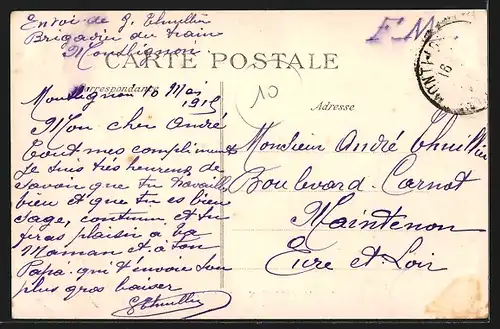 Envoi de G. Thuillier
Brigadier du train
Montlignon
F M.
CARTE POSTALE
Correspondance
Adresse
10
MONTL
16
Montlignon 16 Mai
1915
Mon cher André
Tout mes compliments
je suis très heureux de
savoir que tu travailles
bien et que tu es bien
sage, continue et tu
feras plaisir à ta
Maman et à ton
Papa qui t'envoie son
plus gros baiser
GThuillier
Monsieur André Thuillier
Boulevard Carnot
Maintenon
Eure et Loir